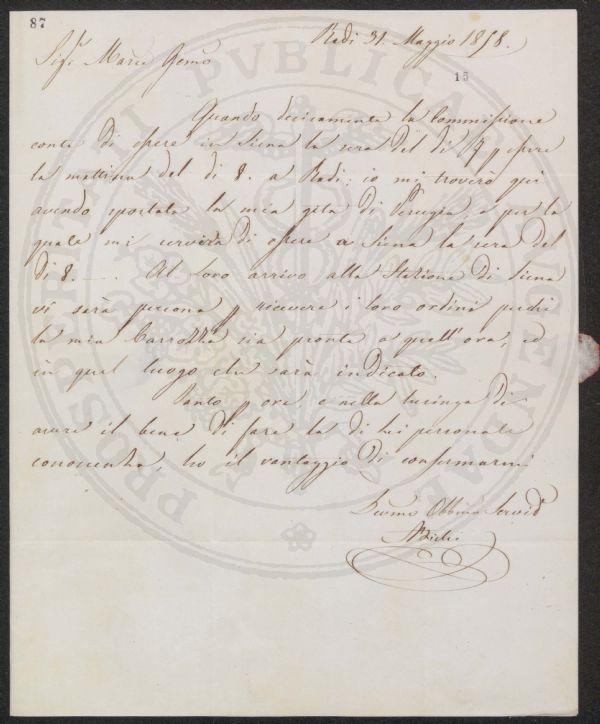 87
Radi 31. Maggio 1858.
15
Sigr Marco
Quando decisamente la Commissione
conta di essere in Siena la sera del dì 7 p essere
la mattina del dì 8. a Radi; io mi troverò quì
avendo spostata la mia gita di Perugia, e per la
quale mi servirà di essere a Siena la sera del
dì 8. —. Al Loro arrivo alla Stazione di Siena
vi sarà persona p ricevere i loro ordini perchè
la mia Carrozza sia pronta a quell'ora, ed
in quel luogo che sarà indicato.
Tanto p ora, e nella lusinga di
avere il bene di fare la di lei personale
conoscenza, ho il vantaggio di confermarmi
Devmo Obbmo Servid
PROSPERITATI PUBLICAE AUGENDAE